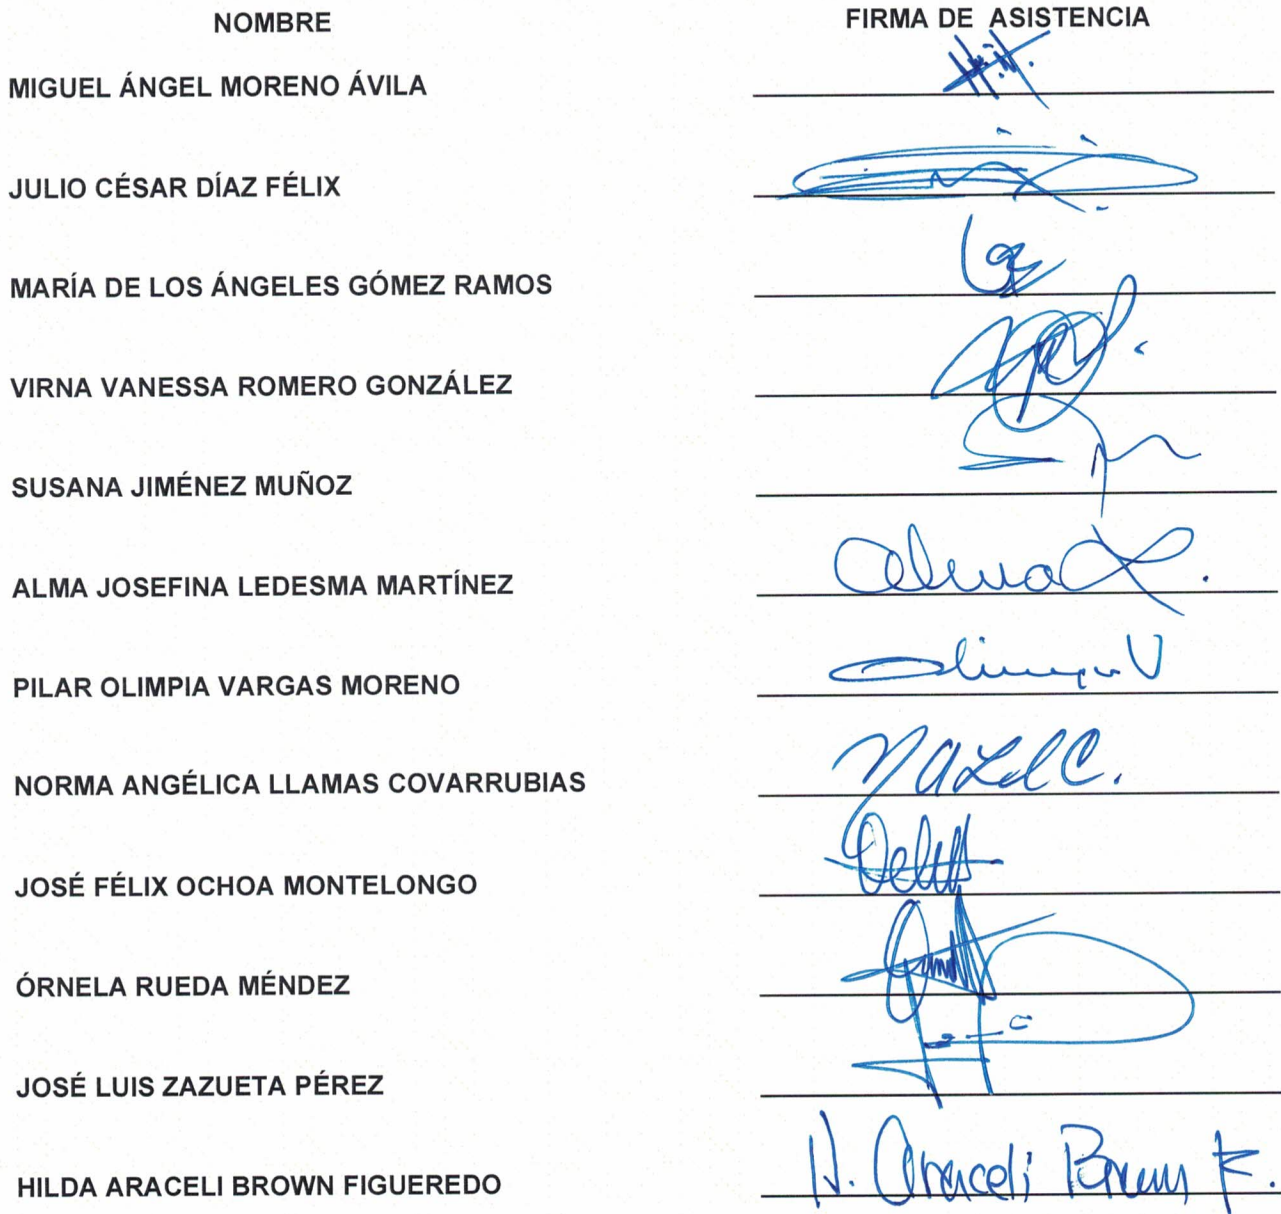 NOMBRE FIRMA DE ASISTENCIA
MIGUEL ÁNGEL MORENO ÁVILA
JULIO CÉSAR DÍAZ FÉLIX
MARÍA DE LOS ÁNGELES GÓMEZ RAMOS
VIRNA VANESSA ROMERO GONZÁLEZ
SUSANA JIMÉNEZ MUÑOZ
ALMA JOSEFINA LEDESMA MARTÍNEZ Alma L.
PILAR OLIMPIA VARGAS MORENO
NORMA ANGÉLICA LLAMAS COVARRUBIAS
JOSÉ FÉLIX OCHOA MONTELONGO
ÓRNELA RUEDA MÉNDEZ
JOSÉ LUIS ZAZUETA PÉREZ
HILDA ARACELI BROWN FIGUEREDO H. Araceli Brown F.